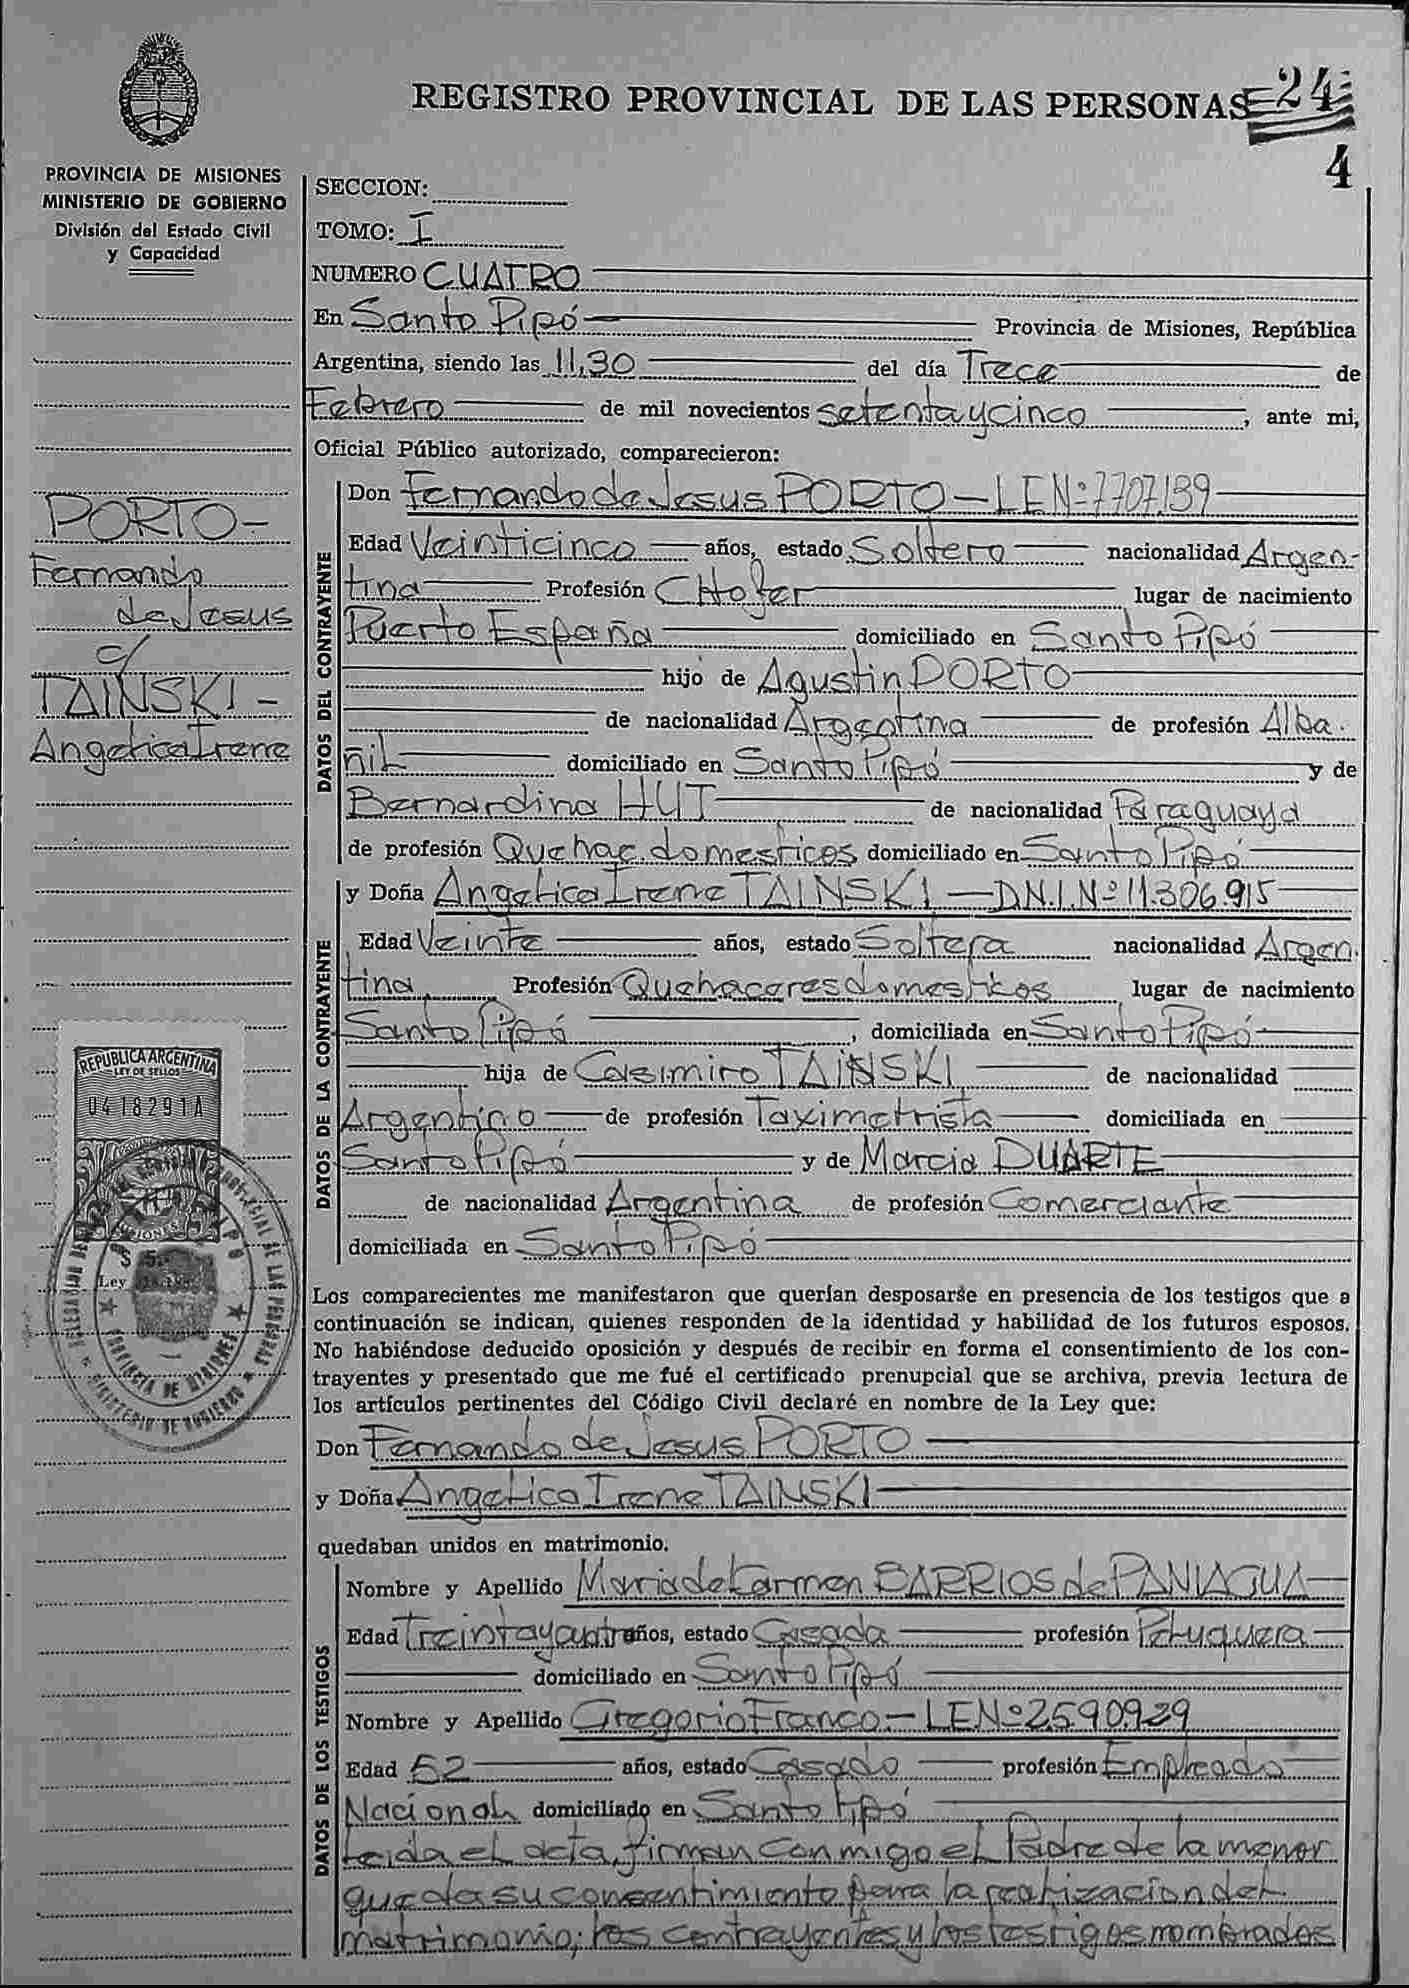 REGISTRO PROVINCIAL DE LAS PERSONAS
=24=
4
PROVINCIA DE MISIONES
MINISTERIO DE GOBIERNO
División del Estado Civil
y Capacidad
SECCION:
TOMO: I
NUMERO CUATRO
En Santo Pipó Provincia de Misiones, República
Argentina, siendo las 11,30 del día Trece de
Febrero de mil novecientos setentaycinco, ante mi,
Oficial Público autorizado, comparecieron:
PORTO-
Fernando
de Jesus
c/
TAINSKI-
Angelica Irene
DATOS DEL CONTRAYENTE
Don Fernando de Jesus PORTO - LENº 7707.139
Edad Veinticinco años, estado Soltero nacionalidad Argen-
tina Profesión CHofer lugar de nacimiento
Puerto España domiciliado en Santo Pipó
hijo de Agustin PORTO
de nacionalidad Argentina de profesión Alba.
ñil domiciliado en Santo Pipó y de
Bernardina HUT de nacionalidad Paraguaya
de profesión Quehac. domesticos domiciliado en Santo Pipó
DATOS DE LA CONTRAYENTE
y Doña Angelica Irene TAINSKI - D.N.I.Nº 11.306.915
Edad Veinte años, estado Soltera nacionalidad Argen.
tina Profesión Quehaceres domesticos lugar de nacimiento
Santo Pipó, domiciliada en Santo Pipó
hija de Casimiro TAINSKI de nacionalidad
Argentino de profesión Taximetrista domiciliada en
Santo Pipó y de Marcia DUARTE
de nacionalidad Argentina de profesión Comerciante
domiciliada en Santo Pipó
REPUBLICA ARGENTINA
LEY DE SELLOS
0418291A
Los comparecientes me manifestaron que querían desposarse en presencia de los testigos que a
continuación se indican, quienes responden de la identidad y habilidad de los futuros esposos.
No habiéndose deducido oposición y después de recibir en forma el consentimiento de los con-
trayentes y presentado que me fué el certificado prenupcial que se archiva, previa lectura de
los artículos pertinentes del Código Civil declaré en nombre de la Ley que:
Don Fernando de Jesus PORTO
y Doña Angelica Irene TAINSKI
quedaban unidos en matrimonio.
DATOS DE LOS TESTIGOS
Nombre y Apellido Maria de Carmen BARRIOS de PANIAGUA
Edad Treintaycuatro años, estado Casada profesión Peluquera
domiciliado en Santo Pipó
Nombre y Apellido Gregorio Franco - LENº 2590.929
Edad 52 años, estado Casado profesión Empleado
Nacional domiciliado en Santo Pipó
Leida el acta, firman conmigo el Padre de la menor
que da su consentimiento para la realizacion del
matrimonio; los contrayentes y los testigos nombrados